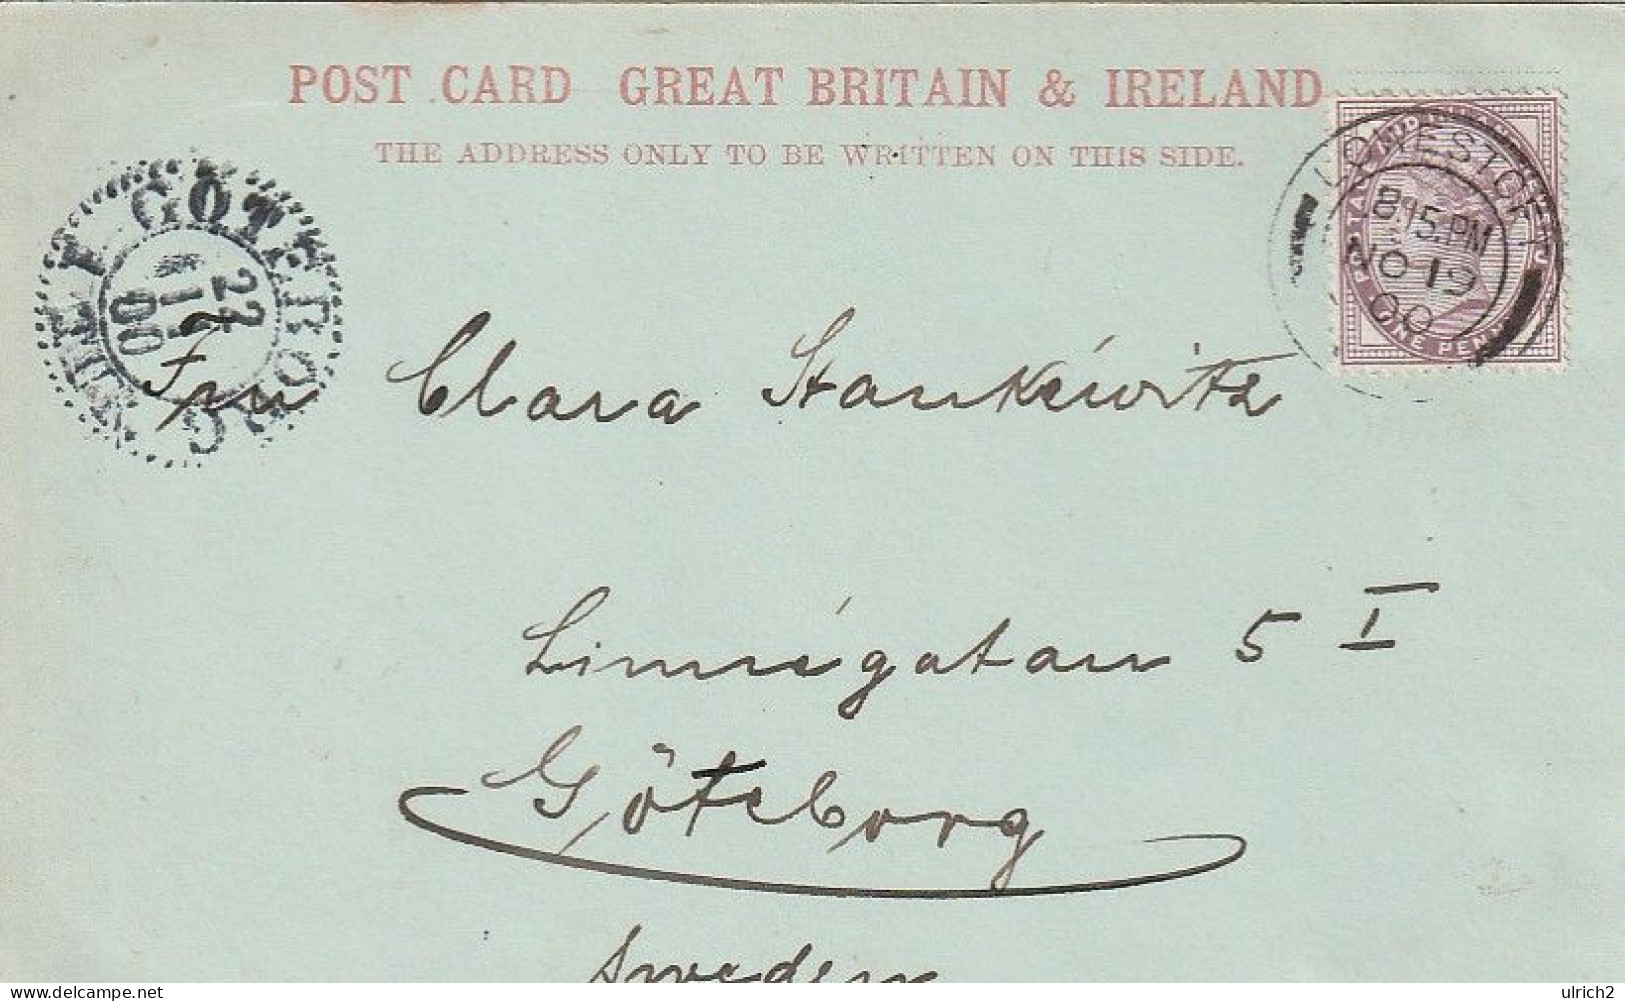 POST CARD GREAT BRITAIN & IRELAND
THE ADDRESS ONLY TO BE WRITTEN ON THIS SIDE.
LOWESTOFT
8.15.PM
NO 19
00
POSTAGE AND INLAND REVENUE
ONE PENNY
GÖTEBORG
22
11
00
Fru Clara Stankéwitz
Linnégatan 5 I
Göteborg
Sweden
ulrich2